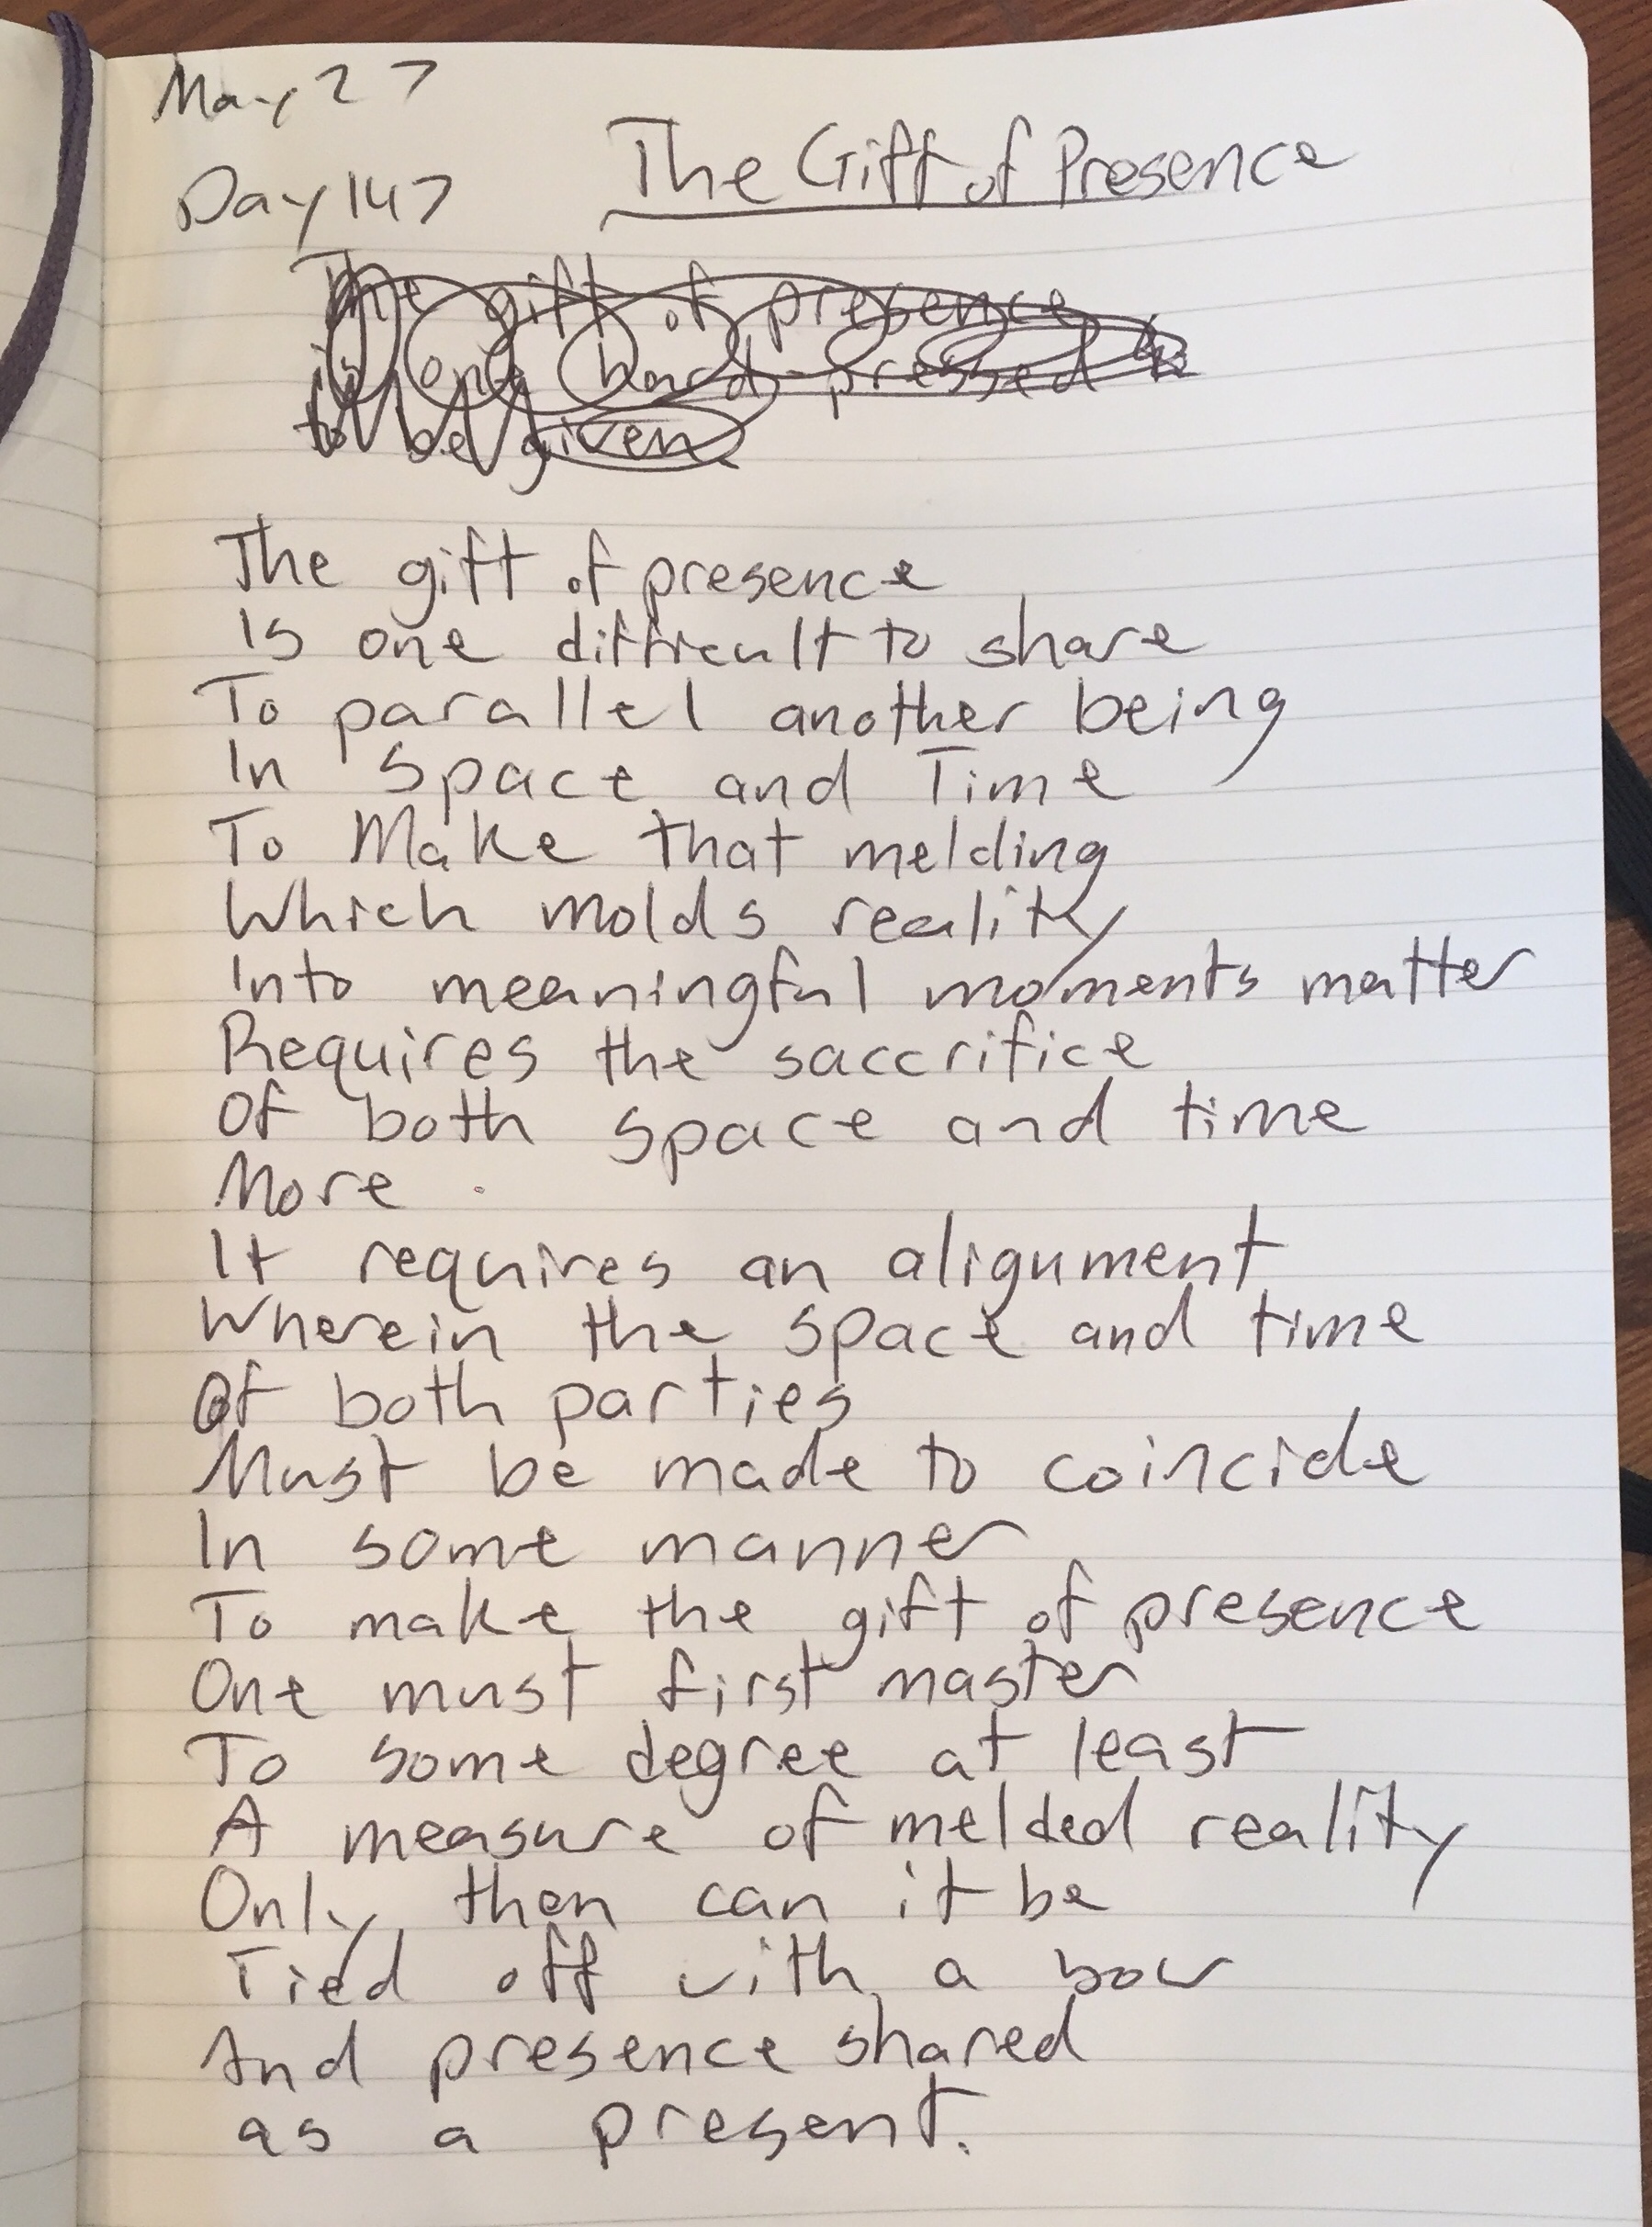 May 27
Day 147 The Gift of Presence
The gift of presence
is one hard-pressed
to be given
The gift of presence
Is one difficult to share
To parallel another being
In Space and Time
To Make that melding
Which molds reality
Into meaningful moments matter
Requires the saccrifice
Of both space and time
More
It requires an alignment
Wherein the space and time
Of both parties
Must be made to coincide
In some manner
To make the gift of presence
One must first master
To some degree at least
A measure of melded reality
Only then can it be
Tied off with a bow
And presence shared
as a present.